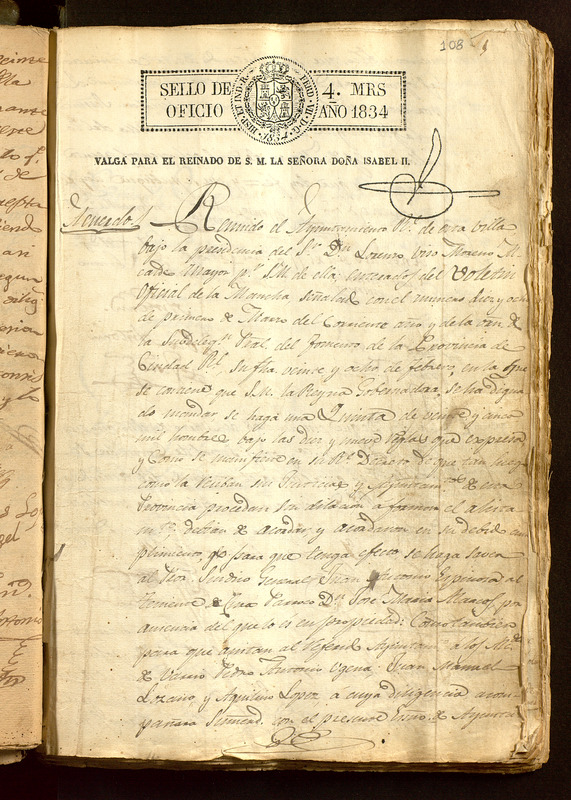 108
SELLO DE OFICIO
4. MRS AÑO 1834
HISP. ET IND. R.
FERD. VII. D. G.
1834
VALGA PARA EL REINADO DE S. M. LA SEÑORA DOÑA ISABEL II.
Acuerdo
Reunido el Ayuntamiento Rl. de esta villa
bajo la presidencia del Sr. Dn. Lorenzo Moreno Al
calde mayor pr. S.M. de ella, enterados del Voletin
Oficial de la Mancha señalado con el numero diez y ocho
de primero de Marzo del Corriente año y de la orn. de
la Subdelegn. Pral. del Fomento de la Provincia de
Ciudad Rl. su fha. veinte y ocho de febrero, en la que
se contiene que S.M. la Reyna Gobernadora, se ha digna
do mandar se haga una Quinta de veinte y cinco
mil hombres bajo las diez y nueve reglas que expresa
y como se manifiesta en su Rl. Decreto de que tan luego
como la reciban las Justicias y Ayuntamtos. de esta
Provincia procedan sin dilacion a formar el alista
mto.; devian de acordar y acordaron en su debido cum
plimiento, y para que tenga efecto se haga saver
al Pror. Sindico General, Juan Antonio Espinosa al
Teniente de Cura Parroco Dn. José Maria Marcos, por
ausencia del que lo es en propiedad: Como tambien
para que asistan al referido Ayuntam. a los
de Varrio Pedro Antonio Juan Manuel
Lozano, y Aquilino Lopez a cuya diligencia acom
pañara con el presente Esno. de Ayunta